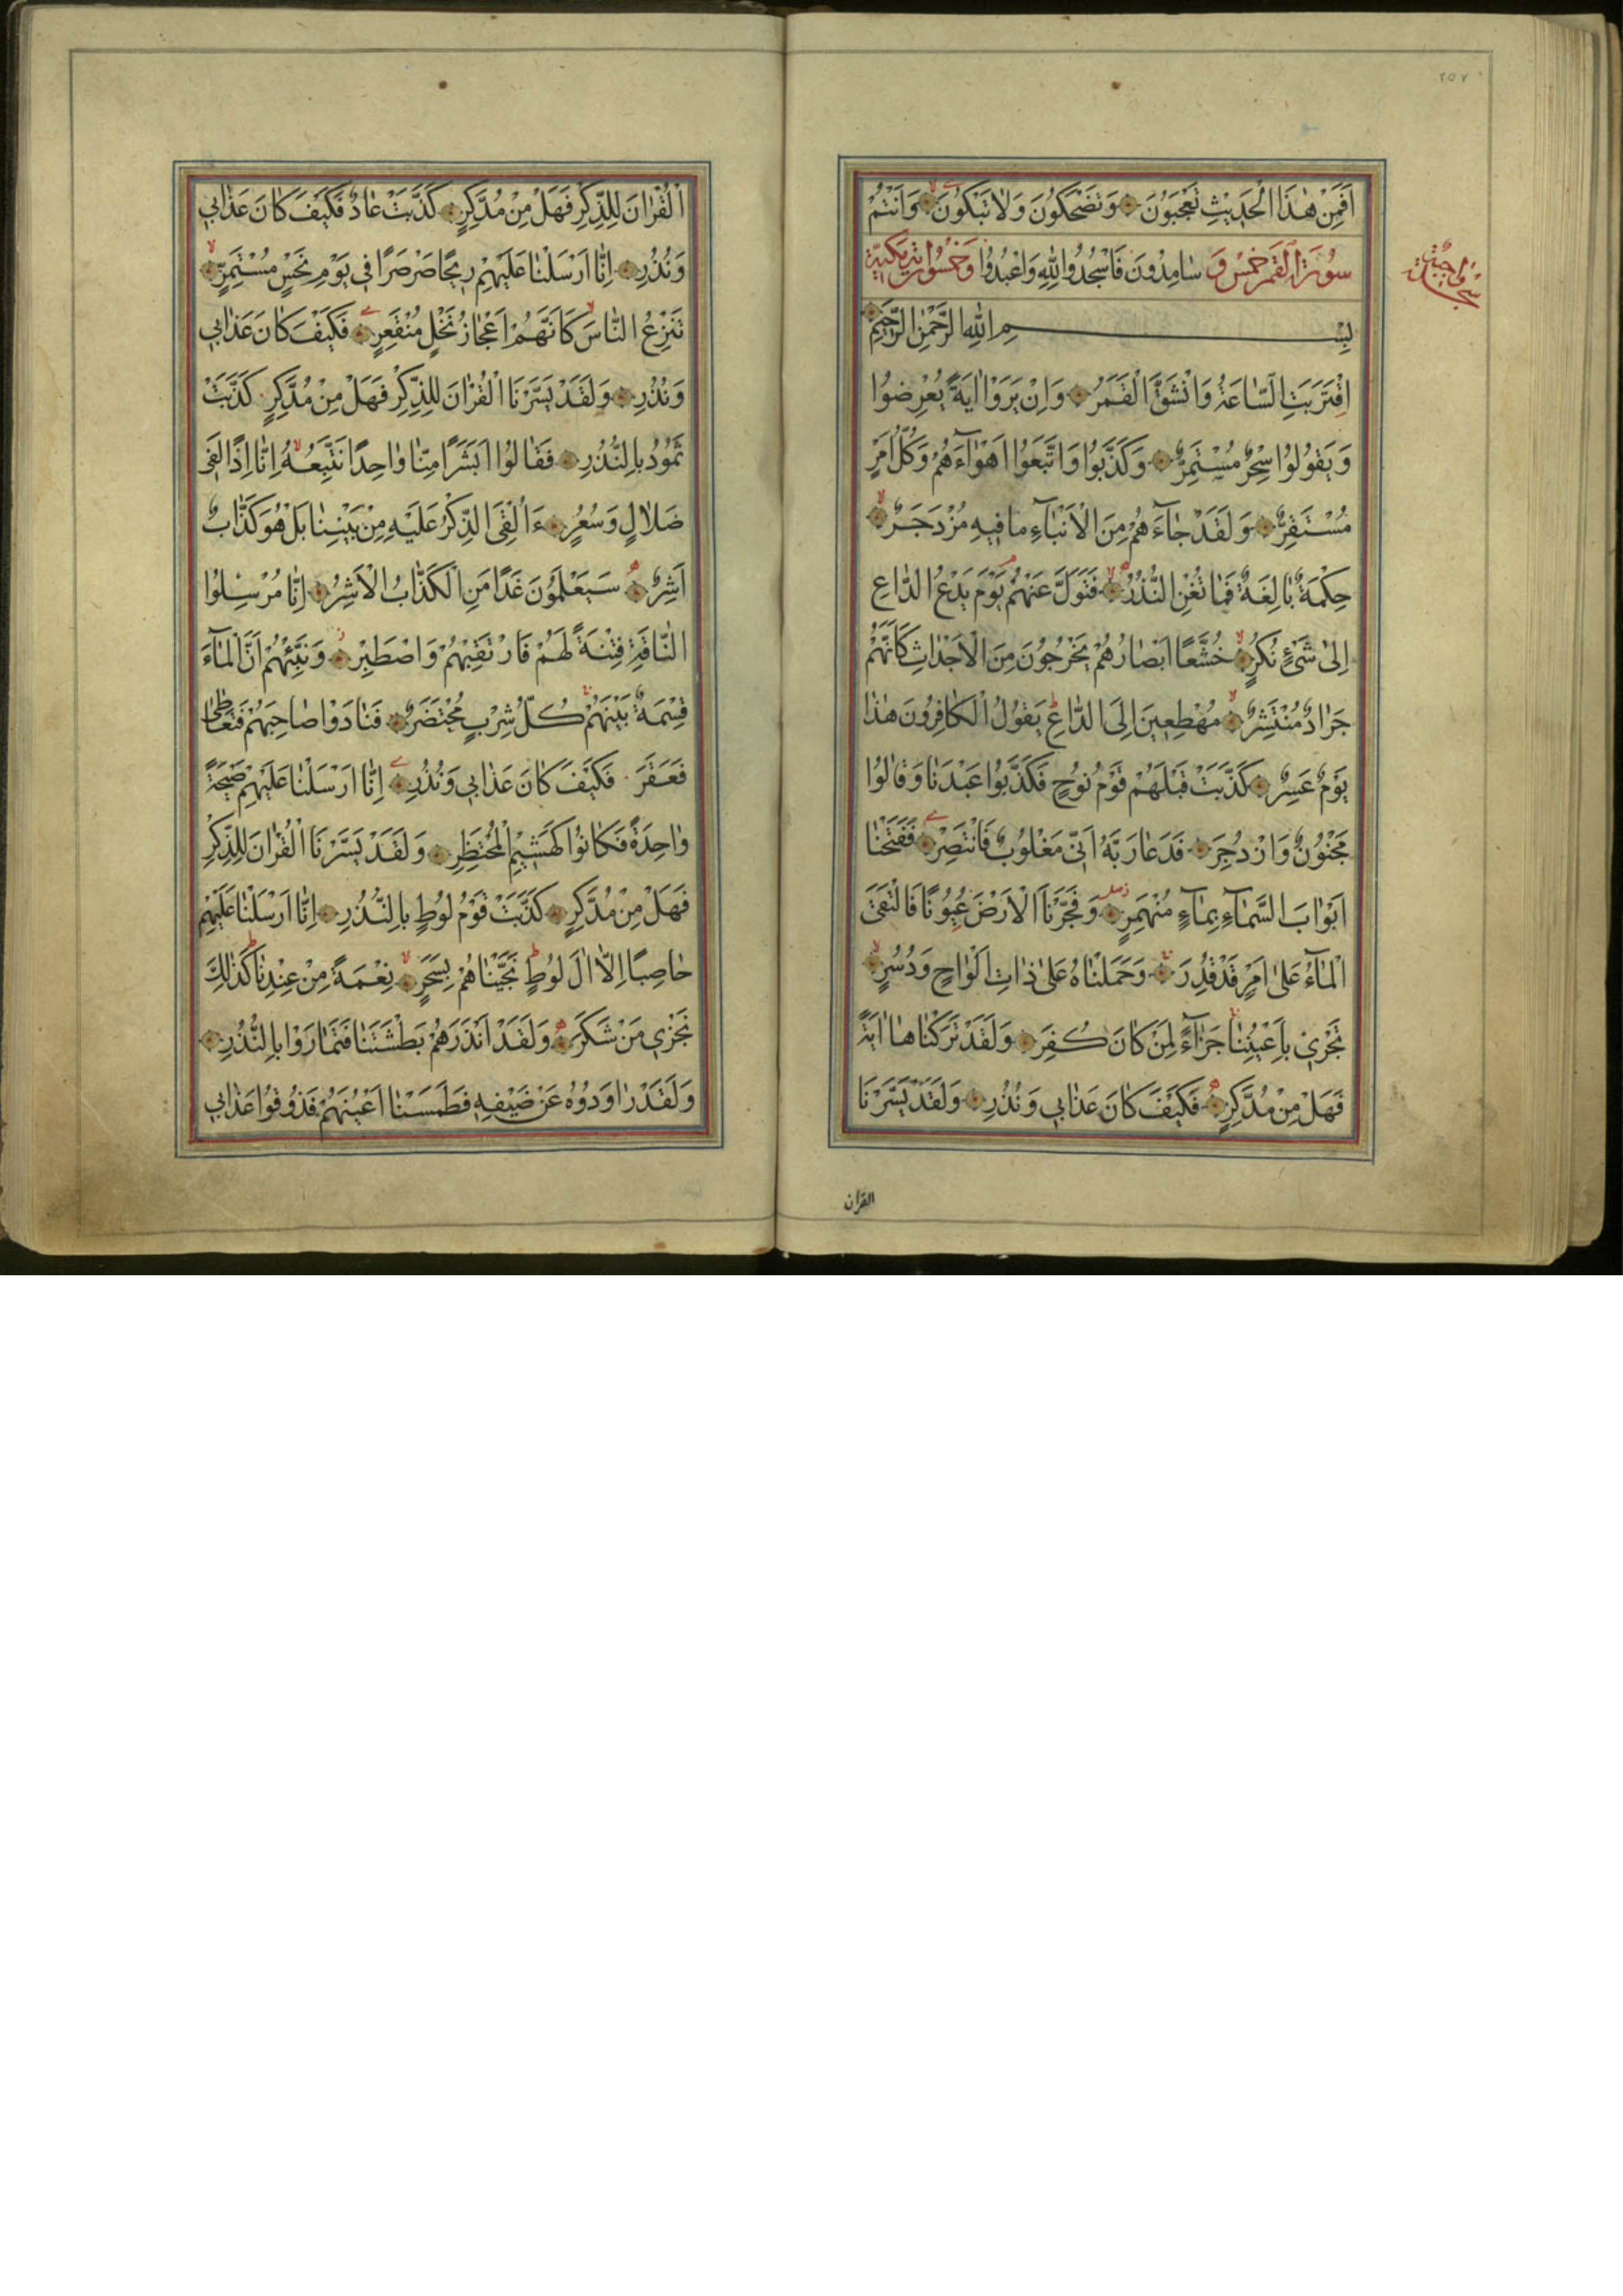 ٢٥٧
اَفَمِنْ هٰذَا الْحَدِيثِ تَعْجَبُونَ وَتَضْحَكُونَ وَلَا تَبْكُونَ وَاَنْتُمْ
سُورَةُ الْقَمَرِ خَمْسٌ وَ سَامِدُونَ فَاسْجُدُوا لِلّٰهِ وَاعْبُدُوا وَخَمْسُونَ اٰيَة مَكِّيَّة
سجدة واجبة
بِسْمِ اللّٰهِ الرَّحْمٰنِ الرَّحِيمِ
اِقْتَرَبَتِ السَّاعَةُ وَانْشَقَّ الْقَمَرُ وَاِنْ يَرَوْا اٰيَةً يُعْرِضُوا
وَيَقُولُوا سِحْرٌ مُسْتَمِرٌّ وَكَذَّبُوا وَاتَّبَعُوا اَهْوَآءَهُمْ وَكُلُّ اَمْرٍ
مُسْتَقِرٌّ وَلَقَدْ جَآءَهُمْ مِنَ الْاَنْبَآءِ مَا فِيهِ مُزْدَجَرٌ
حِكْمَةٌ بَالِغَةٌ فَمَا تُغْنِ النُّذُرُ فَتَوَلَّ عَنْهُمْ يَوْمَ يَدْعُ الدَّاعِ
اِلٰى شَيْءٍ نُكُرٍ خُشَّعًا اَبْصَارُهُمْ يَخْرُجُونَ مِنَ الْاَجْدَاثِ كَاَنَّهُمْ
جَرَادٌ مُنْتَشِرٌ مُهْطِعِينَ اِلَى الدَّاعِ يَقُولُ الْكَافِرُونَ هٰذَا
يَوْمٌ عَسِرٌ كَذَّبَتْ قَبْلَهُمْ قَوْمُ نُوحٍ فَكَذَّبُوا عَبْدَنَا وَقَالُوا
مَجْنُونٌ وَازْدُجِرَ فَدَعَا رَبَّهُ اَنِّي مَغْلُوبٌ فَانْتَصِرْ فَفَتَحْنَا
اَبْوَابَ السَّمَآءِ بِمَآءٍ مُنْهَمِرٍ وَفَجَّرْنَا الْاَرْضَ عُيُونًا فَالْتَقَى
الْمَآءُ عَلٰى اَمْرٍ قَدْ قُدِرَ وَحَمَلْنَاهُ عَلٰى ذَاتِ اَلْوَاحٍ وَدُسُرٍ
تَجْرِي بِاَعْيُنِنَا جَزَآءً لِمَنْ كَانَ كُفِرَ وَلَقَدْ تَرَكْنَاهَا اٰيَةً
فَهَلْ مِنْ مُدَّكِرٍ فَكَيْفَ كَانَ عَذَابِي وَنُذُرِ وَلَقَدْ يَسَّرْنَا
القران
الْقُرْاٰنَ لِلذِّكْرِ فَهَلْ مِنْ مُدَّكِرٍ كَذَّبَتْ عَادٌ فَكَيْفَ كَانَ عَذَابِي
وَنُذُرِ اِنَّا اَرْسَلْنَا عَلَيْهِمْ رِيحًا صَرْصَرًا فِي يَوْمِ نَحْسٍ مُسْتَمِرٍّ
تَنْزِعُ النَّاسَ كَاَنَّهُمْ اَعْجَازُ نَخْلٍ مُنْقَعِرٍ فَكَيْفَ كَانَ عَذَابِي
وَنُذُرِ وَلَقَدْ يَسَّرْنَا الْقُرْاٰنَ لِلذِّكْرِ فَهَلْ مِنْ مُدَّكِرٍ كَذَّبَتْ
ثَمُودُ بِالنُّذُرِ فَقَالُوا اَبَشَرًا مِنَّا وَاحِدًا نَتَّبِعُهُ اِنَّا اِذًا لَفِي
ضَلَالٍ وَسُعُرٍ ءَاُلْقِيَ الذِّكْرُ عَلَيْهِ مِنْ بَيْنِنَا بَلْ هُوَ كَذَّابٌ
اَشِرٌ سَيَعْلَمُونَ غَدًا مَنِ الْكَذَّابُ الْاَشِرُ اِنَّا مُرْسِلُوا
النَّاقَةِ فِتْنَةً لَهُمْ فَارْتَقِبْهُمْ وَاصْطَبِرْ وَنَبِّئْهُمْ اَنَّ الْمَآءَ
قِسْمَةٌ بَيْنَهُمْ كُلُّ شِرْبٍ مُحْتَضَرٌ فَنَادَوْا صَاحِبَهُمْ فَتَعَاطٰى
فَعَقَرَ فَكَيْفَ كَانَ عَذَابِي وَنُذُرِ اِنَّا اَرْسَلْنَا عَلَيْهِمْ صَيْحَةً
وَاحِدَةً فَكَانُوا كَهَشِيمِ الْمُحْتَظِرِ وَلَقَدْ يَسَّرْنَا الْقُرْاٰنَ لِلذِّكْرِ
فَهَلْ مِنْ مُدَّكِرٍ كَذَّبَتْ قَوْمُ لُوطٍ بِالنُّذُرِ اِنَّا اَرْسَلْنَا عَلَيْهِمْ
حَاصِبًا اِلَّا اٰلَ لُوطٍ نَجَّيْنَاهُمْ بِسَحَرٍ نِعْمَةً مِنْ عِنْدِنَا كَذٰلِكَ
نَجْزِي مَنْ شَكَرَ وَلَقَدْ اَنْذَرَهُمْ بَطْشَتَنَا فَتَمَارَوْا بِالنُّذُرِ
وَلَقَدْ رَاوَدُوهُ عَنْ ضَيْفِهِ فَطَمَسْنَا اَعْيُنَهُمْ فَذُوقُوا عَذَابِي